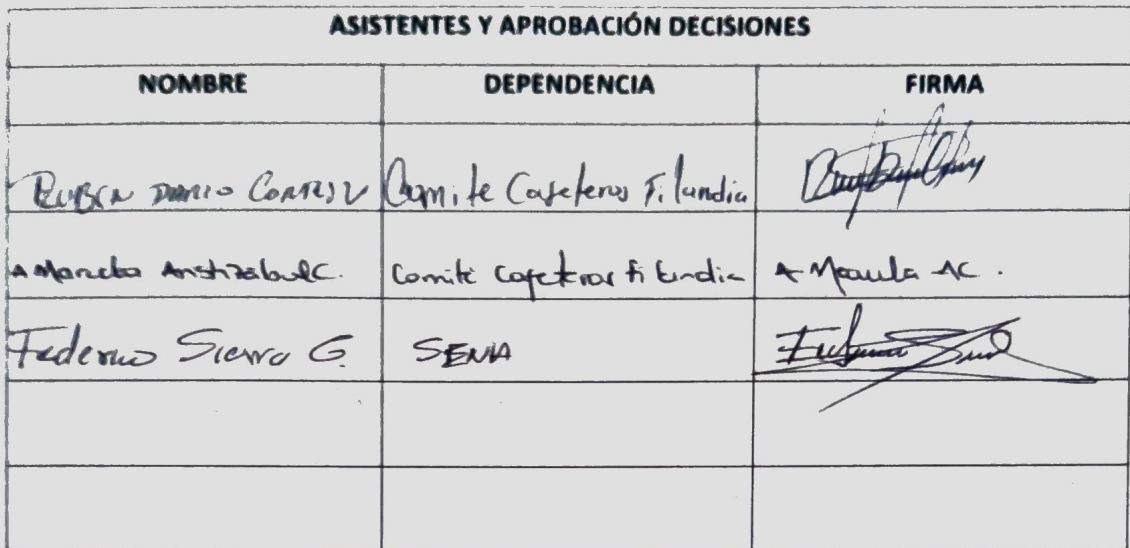 ASISTENTES Y APROBACIÓN DECISIONES
NOMBRE DEPENDENCIA FIRMA
RUBEN DARIO Comite Cafeteros Filandia
A Marcela Aristizabal C. Comité Cafeteros filandia A Marcela AC.
Federico Sierra G. SENA